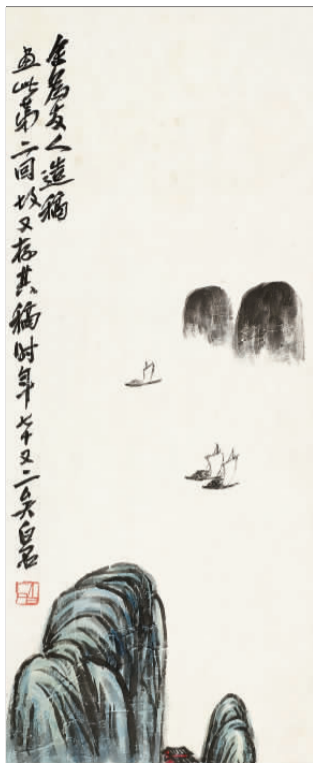 余为友人造稿
画此第二回故又存其稿时年七十又二矣白石